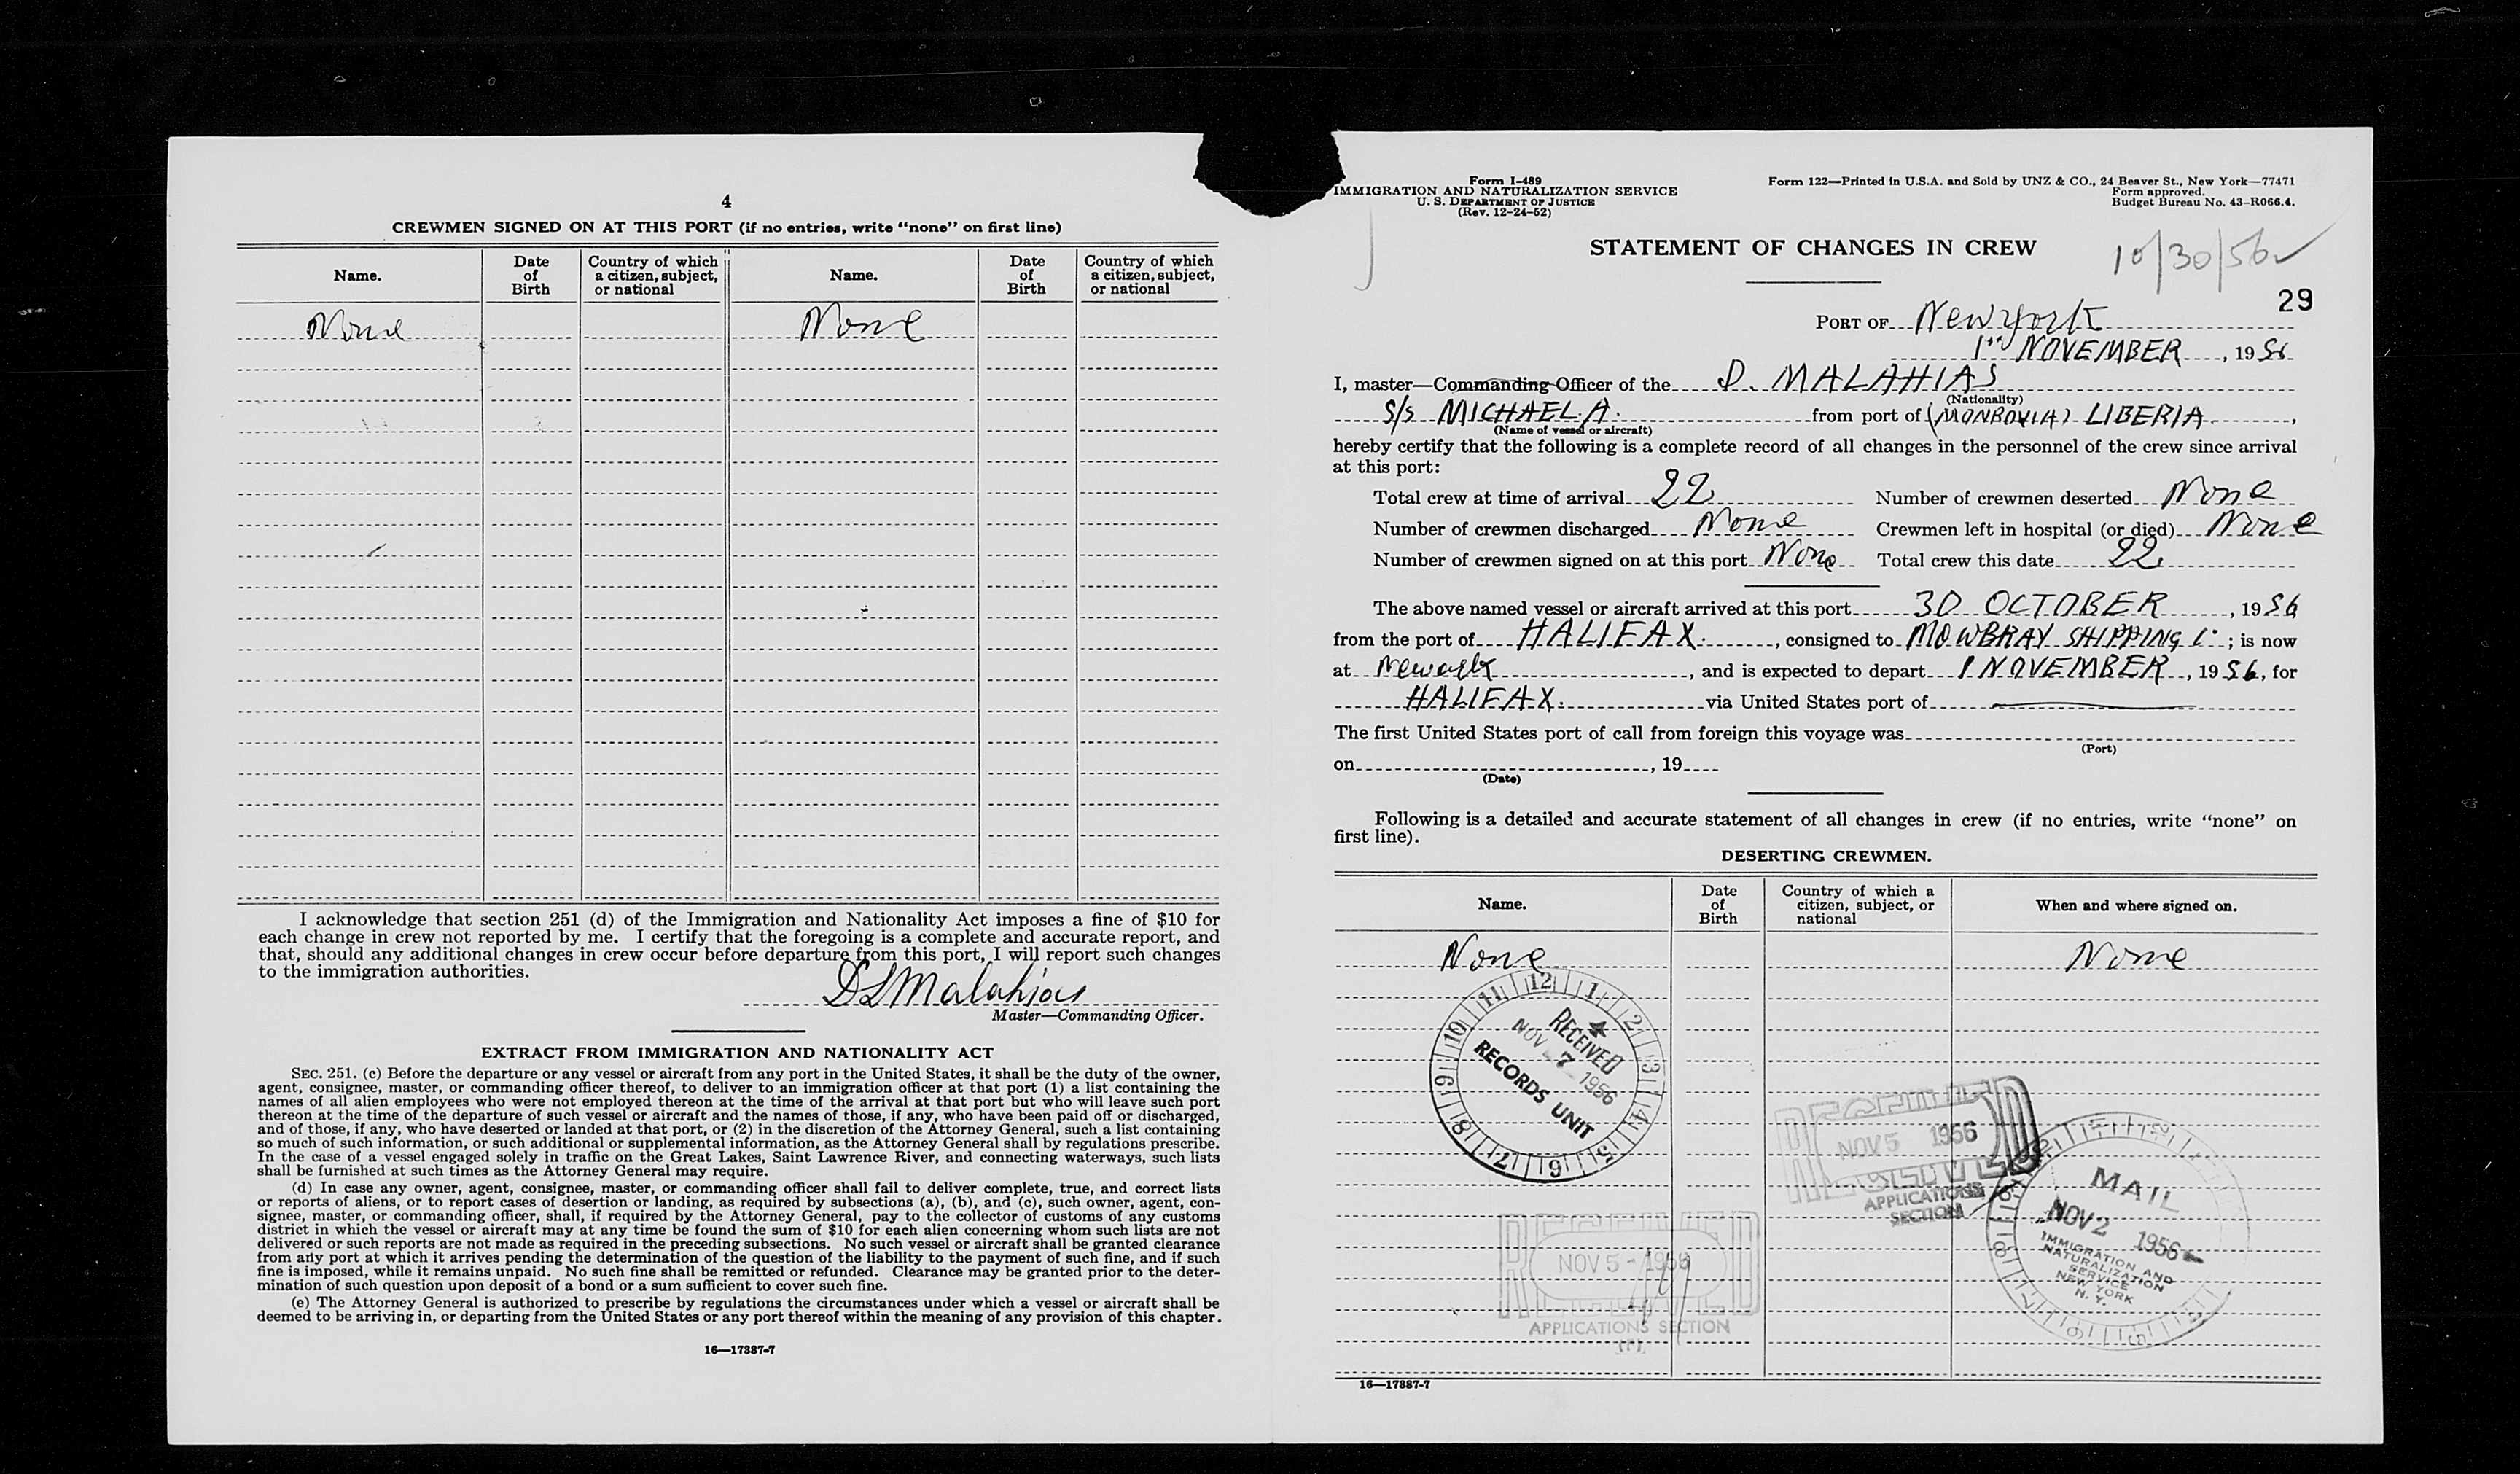 4
CREWMEN SIGNED ON AT THIS PORT (if no entries, write "none" on first line)
Name. Date of Birth Country of which a citizen, subject, or national Name. Date of Birth Country of which a citizen, subject, or national
None None
I acknowledge that section 251 (d) of the Immigration and Nationality Act imposes a fine of $10 for
each change in crew not reported by me. I certify that the foregoing is a complete and accurate report, and
that, should any additional changes in crew occur before departure from this port, I will report such changes
to the immigration authorities.
DLMalahias
Master—Commanding Officer.
EXTRACT FROM IMMIGRATION AND NATIONALITY ACT
SEC. 251. (c) Before the departure or any vessel or aircraft from any port in the United States, it shall be the duty of the owner,
agent, consignee, master, or commanding officer thereof, to deliver to an immigration officer at that port (1) a list containing the
names of all alien employees who were not employed thereon at the time of the arrival at that port but who will leave such port
thereon at the time of the departure of such vessel or aircraft and the names of those, if any, who have been paid off or discharged,
and of those, if any, who have deserted or landed at that port, or (2) in the discretion of the Attorney General, such a list containing
so much of such information, or such additional or supplemental information, as the Attorney General shall by regulations prescribe.
In the case of a vessel engaged solely in traffic on the Great Lakes, Saint Lawrence River, and connecting waterways, such lists
shall be furnished at such times as the Attorney General may require.
(d) In case any owner, agent, consignee, master, or commanding officer shall fail to deliver complete, true, and correct lists
or reports of aliens, or to report cases of desertion or landing, as required by subsections (a), (b), and (c), such owner, agent, con-
signee, master, or commanding officer, shall, if required by the Attorney General, pay to the collector of customs of any customs
district in which the vessel or aircraft may at any time be found the sum of $10 for each alien concerning whom such lists are not
delivered or such reports are not made as required in the preceding subsections. No such vessel or aircraft shall be granted clearance
from any port at which it arrives pending the determination of the question of the liability to the payment of such fine, and if such
fine is imposed, while it remains unpaid. No such fine shall be remitted or refunded. Clearance may be granted prior to the deter-
mination of such question upon deposit of a bond or a sum sufficient to cover such fine.
(e) The Attorney General is authorized to prescribe by regulations the circumstances under which a vessel or aircraft shall be
deemed to be arriving in, or departing from the United States or any port thereof within the meaning of any provision of this chapter.
16—17387-7
Form I-489
IMMIGRATION AND NATURALIZATION SERVICE
U. S. DEPARTMENT OF JUSTICE
(Rev. 12-24-52)
Form 122—Printed in U.S.A. and Sold by UNZ & CO., 24 Beaver St., New York—77471
Form approved.
Budget Bureau No. 43-R066.4.
STATEMENT OF CHANGES IN CREW
10/30/56
29
PORT OF New York
1st NOVEMBER, 1956
I, master—Commanding Officer of the D. MALAHIAS
(Nationality)
S/S MICHAEL A. from port of (MONROVIA) LIBERIA,
(Name of vessel or aircraft)
hereby certify that the following is a complete record of all changes in the personnel of the crew since arrival
at this port:
Total crew at time of arrival 22 Number of crewmen deserted None
Number of crewmen discharged None Crewmen left in hospital (or died) None
Number of crewmen signed on at this port None Total crew this date 22
The above named vessel or aircraft arrived at this port 30 OCTOBER, 1956
from the port of HALIFAX., consigned to MOWBRAY SHIPPING C°; is now
at Newark, and is expected to depart 1 NOVEMBER, 1956, for
HALIFAX. via United States port of
The first United States port of call from foreign this voyage was
(Port)
on , 19
(Date)
Following is a detailed and accurate statement of all changes in crew (if no entries, write "none" on
first line).
DESERTING CREWMEN.
Name. Date of Birth Country of which a citizen, subject, or national When and where signed on.
None None
12 1 2 3 4 5 6 7 8 9 10 11
RECEIVED
NOV 7 1956
RECORDS UNIT
RECEIVED
NOV 5 1956
RECEIVED
APPLICATIONS
SECTION
MAIL
NOV 2 1956
IMMIGRATION AND
NATURALIZATION
SERVICE
NEW YORK
N. Y.
RECEIVED
NOV 5 - 1956
APPLICATIONS SECTION
16—17387-7